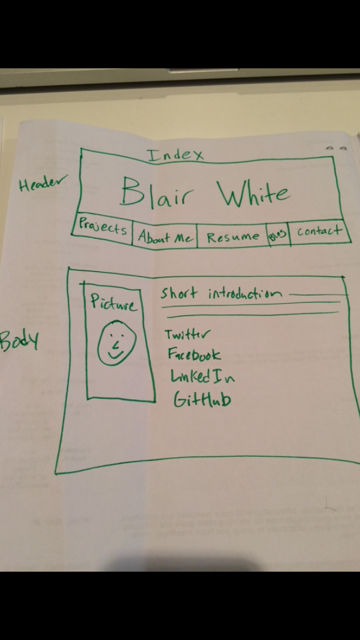 Index
Header
Blair White
Projects About Me Resume Blog Contact
Body
Picture
Short introduction
Twitter
Facebook
LinkedIn
GitHub